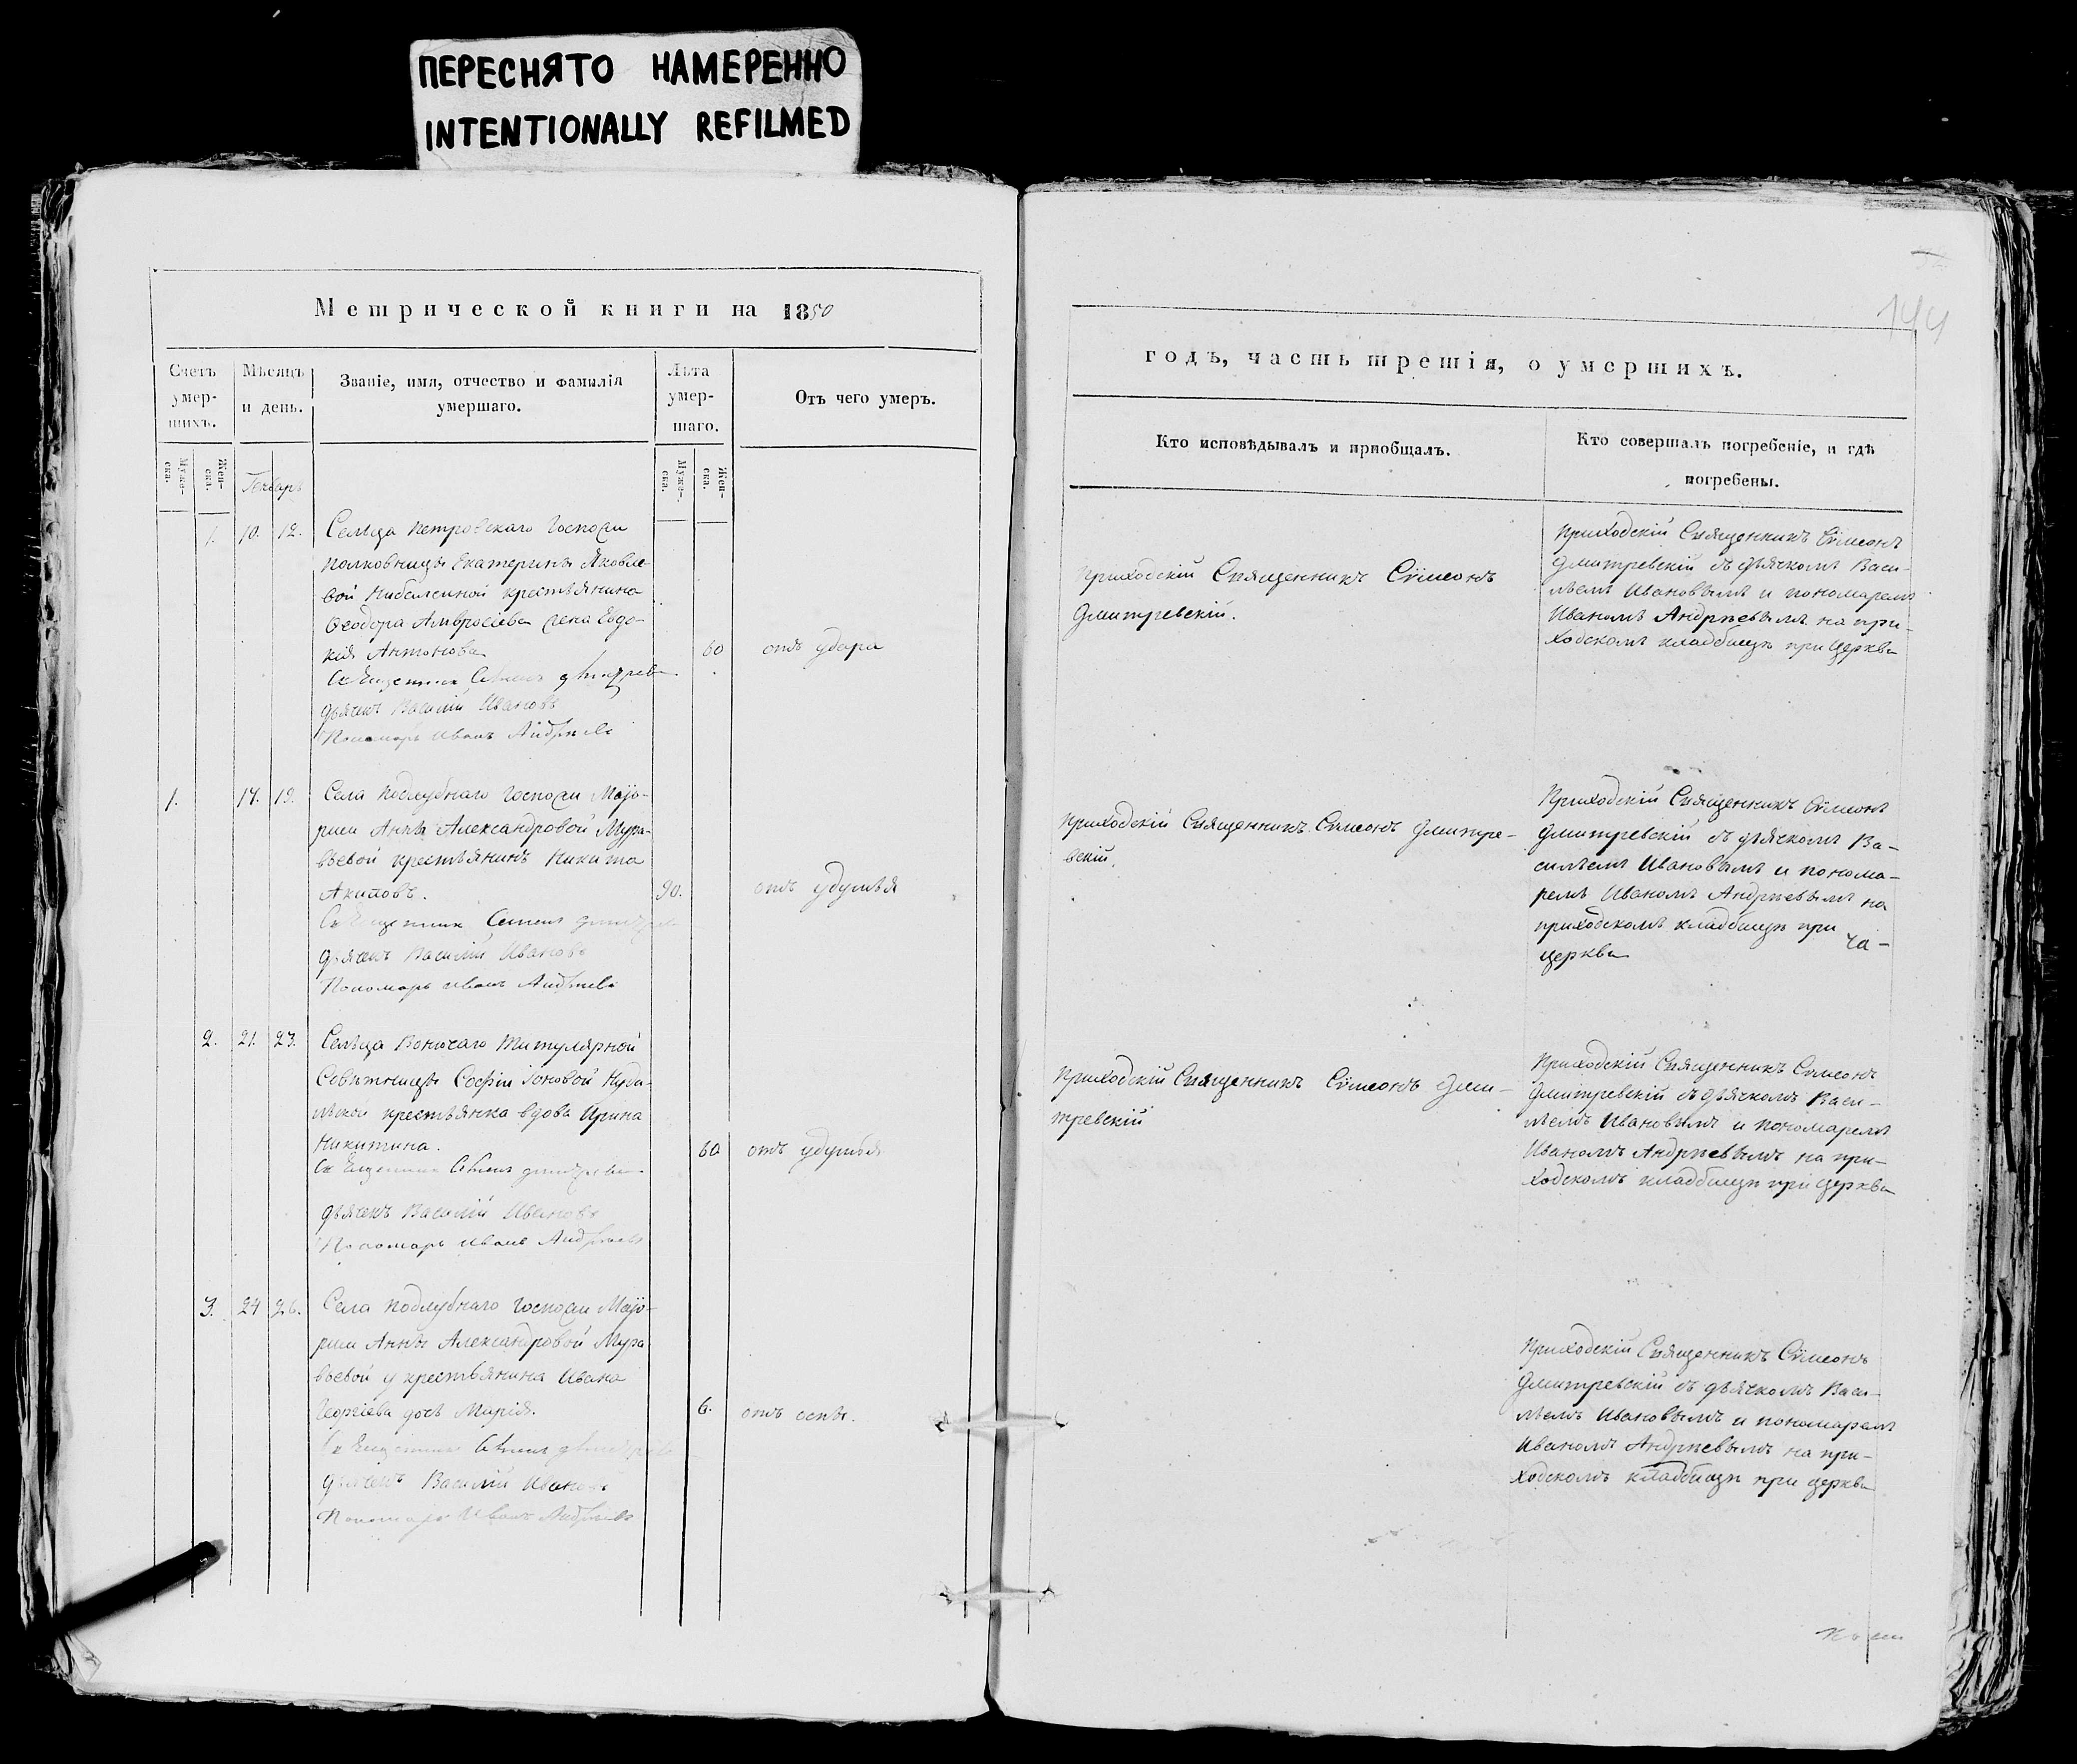 ПЕРЕСНЯТО НАМЕРЕННО
INTENTIONALLY REFILMED
Метрической книги на 1850
Счетъ умер-шихъ.
Мѣсяцъ и день.
Званіе, имя, отчество и фамилія умершаго.
Лѣта умер-шаго.
Отъ чего умеръ.
Муже-ска.
Жен-ска.
Генварь
Муже-ска.
Жен-ска.
1. 10. 12.
Сельца Петровскаго Госпожи
Полковницы Екатерины Яковле-
вой крестьянина
Ѳеодора Амвросіева жена Евдо-
кія Антонова
60 отъ удара
Священникъ Симеонъ Дмитрев
дьячекъ Василій Ивановъ
Пономарь Иванъ Андрѣевъ
1. 17. 19.
Села Поддубнаго Госпожи Маіо-
рши Анны Александровой Мура-
вьевой крестьянинъ Никита
Акиловъ.
90. отъ удушья
Священникъ Симеонъ Дмитрев
дьячекъ Василій Ивановъ
Пономарь Иванъ Андрѣевъ
2. 21. 23.
Сельца Титулярной
Совѣтницы Софіи Іоновой
крестьянка вдова Ирина
Никитина.
60 отъ удушья
Священникъ Симеонъ Дмитрев
дьячекъ Василій Ивановъ
Пономарь Иванъ Андрѣевъ
3. 24 26.
Села Поддубнаго Госпожи Маіо-
рши Анны Александровой Мура
вьевой у крестьянина Ивана
Георгіева дочь Марія.
6. отъ оспы.
Священникъ Симеонъ Дмитрев
дьячекъ Василій Ивановъ
Пономарь Иванъ Андрѣевъ
144
годъ, часть третія, о умершихъ.
Кто исповѣдывалъ и пріобщалъ.
Кто совершалъ погребеніе, и гдѣ
погребены.
Приходскій Священникъ Сѵмеонъ
Дмитревскій.
Приходскій Священникъ Сѵмеонъ
Дмитревскій съ дьячкомъ Васи-
льемъ Ивановымъ и пономаремъ
Иваномъ Андрѣевымъ на при-
ходскомъ кладбищѣ при церкви
Приходскій Священникъ Сѵмеонъ Дмитре-
вскій.
Приходскій Священникъ Сѵмеонъ
Дмитревскій съ дьячкомъ Ва-
сильемъ Ивановымъ и понома-
ремъ Иваномъ Андрѣевымъ на
приходскомъ кладбищѣ при
церкви
ча-
Приходскій Священникъ Сѵмеонъ Дми-
тревскій
Приходскій Священникъ Сѵмеонъ
Дмитревскій съ дьячкомъ Васи-
льемъ Ивановымъ и пономаремъ
Иваномъ Андрѣевымъ на при-
ходскомъ кладбищѣ при церкви
Приходскій Священникъ Сѵмеонъ
Дмитревскій съ дьячкомъ Васи-
льемъ Ивановымъ и пономаремъ
Иваномъ Андрѣевымъ на при-
ходскомъ кладбищѣ при церкви